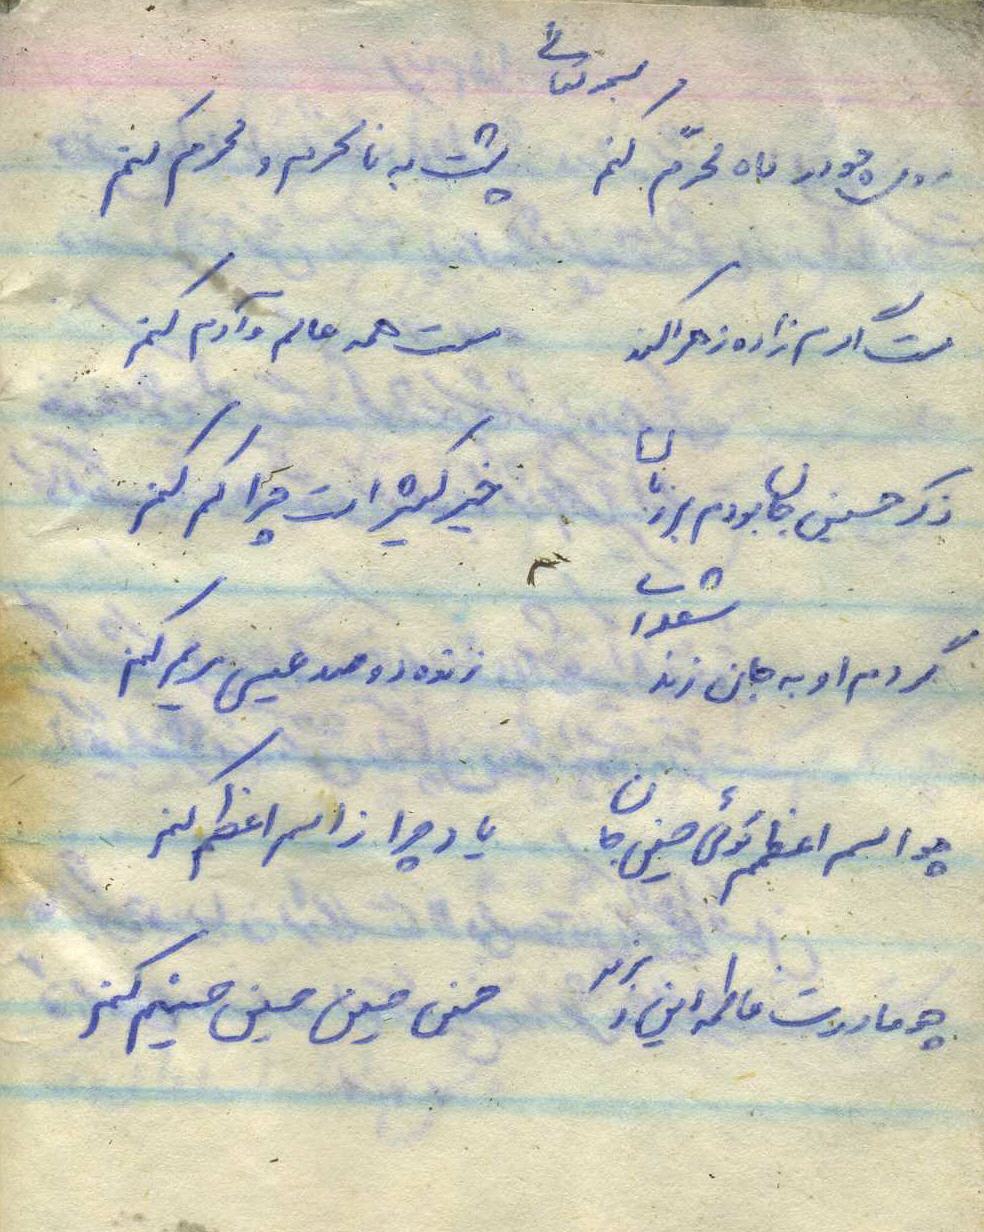 روی چو در ماه محرّم کنم پشت به نامحرم و محرم کنم
مست گرم زاده زهرا کند مست همه عالم و آدم کنم
ذکر حسین جان بودم بر زبان خیر کثیر است چرا کم کنم
گر دم او به جان زند شعله‌ای زنده دو صد عیسی مریم کنم
چو اسم اعظم توئی حسین جان یاد چرا ز اسم اعظم کنم
چو مادرت فاطمه این حسین حسین حسینم کنم